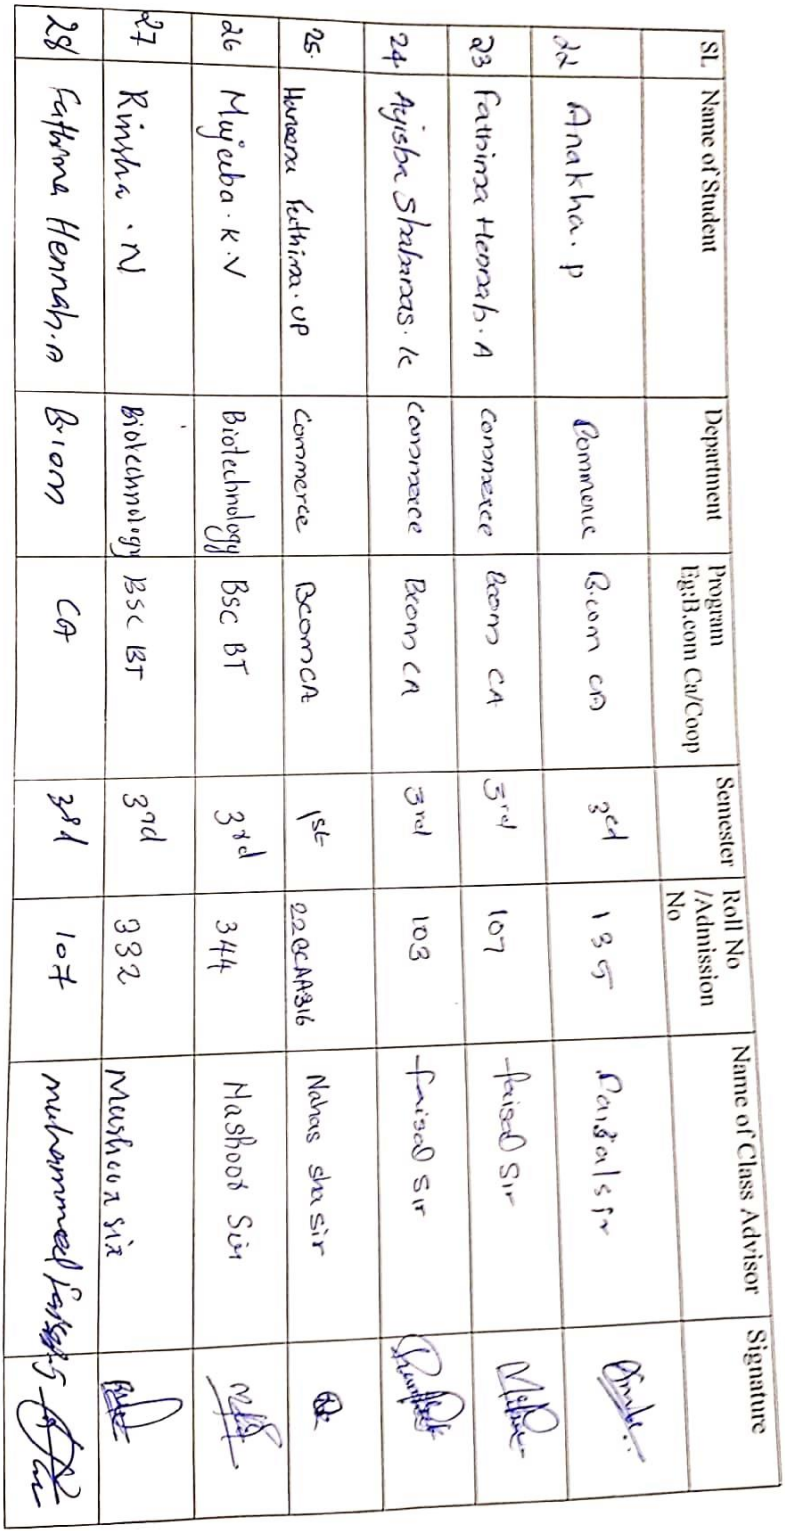 SL Name of Student Department Program Eg:B.com Ca/Coop Semester Roll No /Admission No Name of Class Advisor Signature
22 Anakha. P Commerce B.com CA 3rd 135 Faisal sir
23 Fathima Hennah. A commerce Bcom CA 3rd 107 faisal Sir
24 Ayisha Shabanas. K commerce Bcom CA 3rd 103 faisal Sir
25. Haneena Fathima. UP Commerce Bcom CA 1st Nahas sha sir
26 Mujeeba. K. V Biotechnology BSC BT 3rd 344 Mashoor Sir
27 Rinsha . N Biotechnology BSC BT 3rd 332 Mashoor sir
28 Fathima Hennah. A B.com CA 3rd 107 muhammed